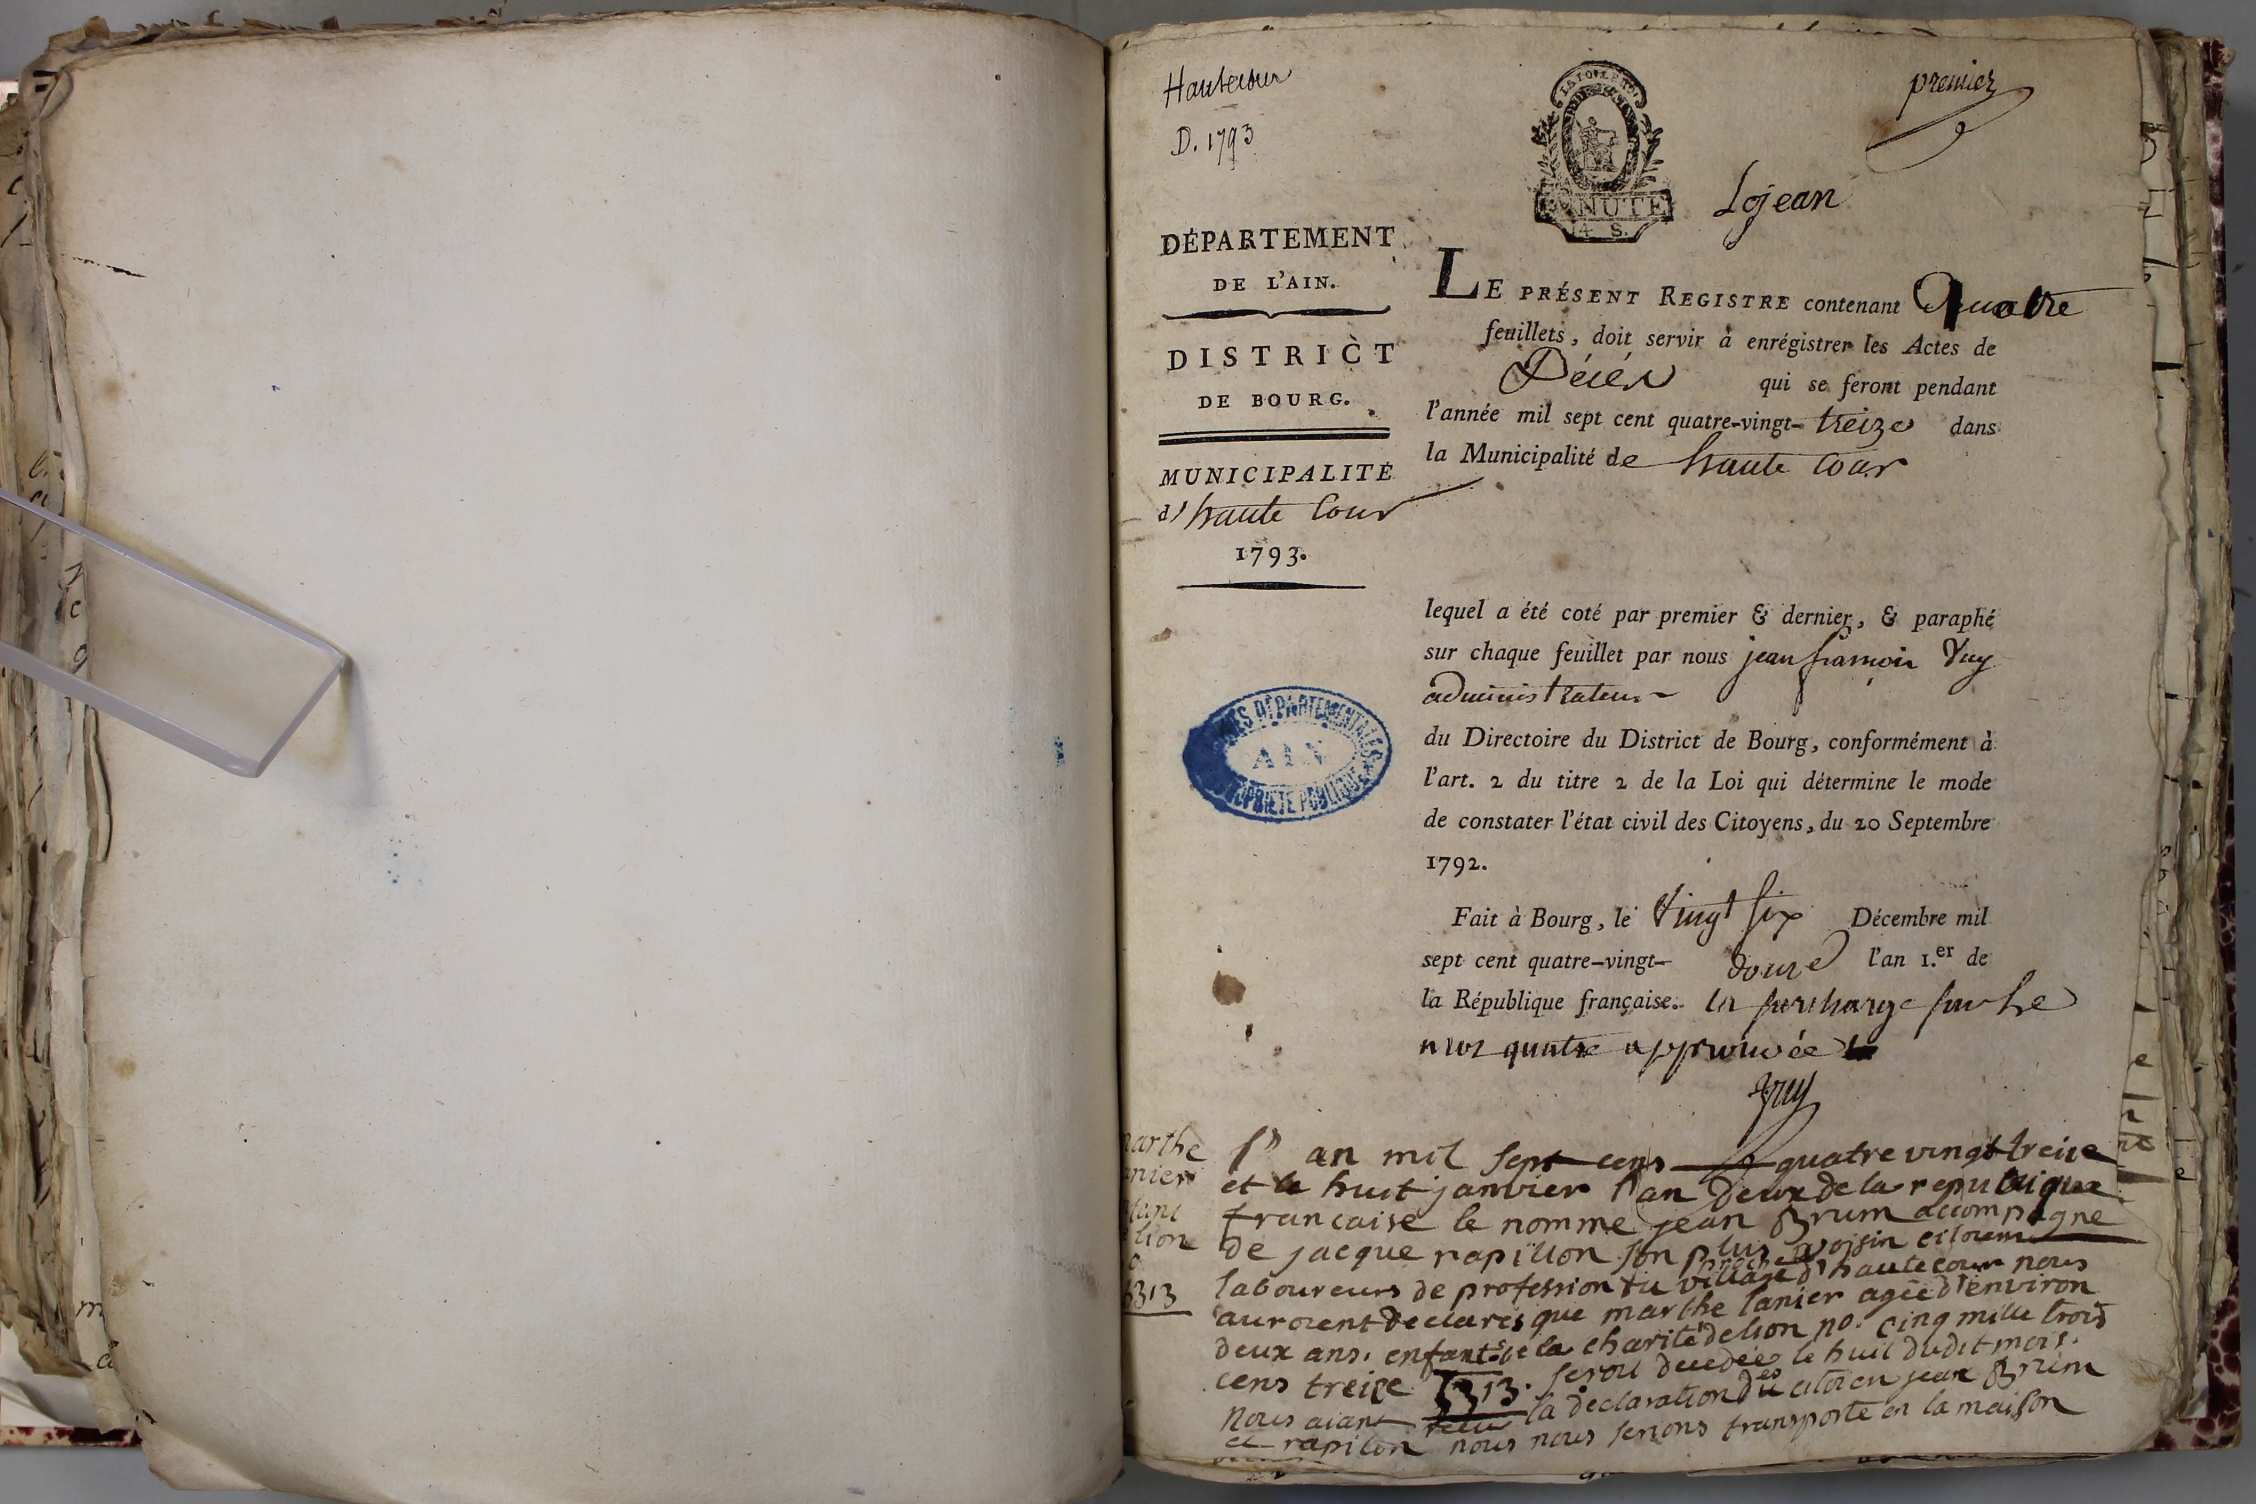 Hautecour
D. 1793
premier
MINUTE
4 S.
DÉPARTEMENT
DE L'AIN.
DISTRICT
DE BOURG.
MUNICIPALITÉ
d' haute Cour
1793.
LE PRÉSENT REGISTRE contenant Quatre
feuillets, doit servir à enrégistrer les Actes de
Décés qui se feront pendant
l'année mil sept cent quatre-vingt- treize dans
la Municipalité de haute Cour
lequel a été coté par premier & dernier, & paraphé
sur chaque feuillet par nous jean françois
administrateur
du Directoire du District de Bourg, conformément à
l'art. 2 du titre 2 de la Loi qui détermine le mode
de constater l'état civil des Citoyens, du 20 Septembre
1792.
Fait à Bourg, le Vingt six Décembre mil
sept cent quatre-vingt- douze l'an 1.er de
la République française. la surcharge sur le
mot quatre approuvée
ARCHIVES DÉPARTEMENTALES
AIN
PROPRIÉTÉ PUBLIQUE
marthe
lanier
5313
l' an mil sept cens quatre vingt treise
et le huit janvier l'an Deux de la republique
francaise le nomme jean Brum accompagne
de jacque rapillon son plus proche voisin citoiens
laboureurs de profession du village d'hautecour nous
auroient declarés que marthe lanier agée d'environ
deux ans. enfant de la charité de lion no. cinq mille trois
cens treise 5313. seroit decedée le huit dudit mois.
Nous aiant la declaration des citoien jean Brum
et rapilon nous nous serions transporte en la maison